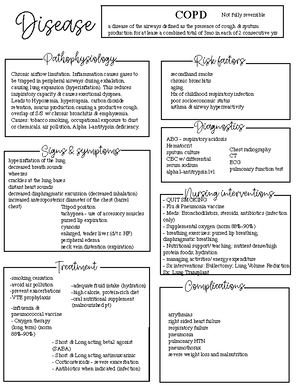 Disease
COPD Not fully reversible
a disease of the airways defined as the presence of cough & sputum
production for at lease a combined total of 3mo in each of 2 consecutive yrs
Pathophysiology
Chronic airflow limitation. Inflammation causes gases to
be trapped in peripheral airways during exhalation,
causing lung expansion (hyperinflation). This reduces
inspiratory capacity & causes exertional dyspnea.
Leads to Hypoxemia, hypercapnia, carbon dioxide
retention, mucus production causing a productive cough.
overlap of S&S w/ chronic bronchitis & emphysema.
Causes: tobacco smoking, occupational exposure to dust
or chemicals, air pollution, Alpha 1-antitrypsin deficiency.
Risk factors
secondhand smoke
chronic bronchitis
aging
Hx of childhood respiratory infection
poor socioeconomic status
asthma & airway hyperreactivity
Diagnostics
ABG - respiratory acidosis
Hematocrit
sputum culture
CBC w/ differential
serum sodium
alpha1-antitrypsin lvl
Chest radiography
CT
ECG
pulmonary function test
Signs & symptoms
hyperinflation of the lung
decreased breath sounds
wheezes
crackles at the lung bases
distant heart sounds
decreased diaphragmatic excursion (decreased inhalation)
increased anteroposterior diameter of the chest (barrel
chest)
Tripod position
tachypnea - use of accessory muscles
pursed lip expiration
cyanosis
enlarged, tender liver (d/t r HF)
peripheral edema
neck vein distention (expiration)
Nursing interventions
- QUIT SMOKING
- Flu & Pneumonia vaccine
- Meds: Bronchodilators, steroids, antibiotics (infection
only)
- Supplemental oxygen (norm 88%-90%)
- breathing exercises: pursed lip breathing,
diaphragmatic breathing
- Nutritional support/teaching; nutrient dense/high
protein foods, hydration
- managing activities/ energy expenditure
- Sx intervention: Bullectomy; Lung Volume Reduction
Sx; Lung Transplant
Treatment
-smoking cessation
-avoid air pollution
-prevent exacerbations
-VTE prophylaxis
-influenza &
pneumococcal vaccine
- Oxygen therapy
(long term) (norm
88%-90%)
-adequate fluid intake (hydration)
-high calorie, protein-rich diet
-oral nutritional supplement
(malnourished pt)
- Short & Long acting beta2 agonist
(SABA)
- Short & Long acting antimuscarinic
- Corticosteroids - severe exacerbation
- Antibiotics when indicated (infection)
Complications
arrythmias
right sided heart failure
respiratory failure
pneumonia
pulmonary HTN
pneumothorax
severe weight loss and malnutrition